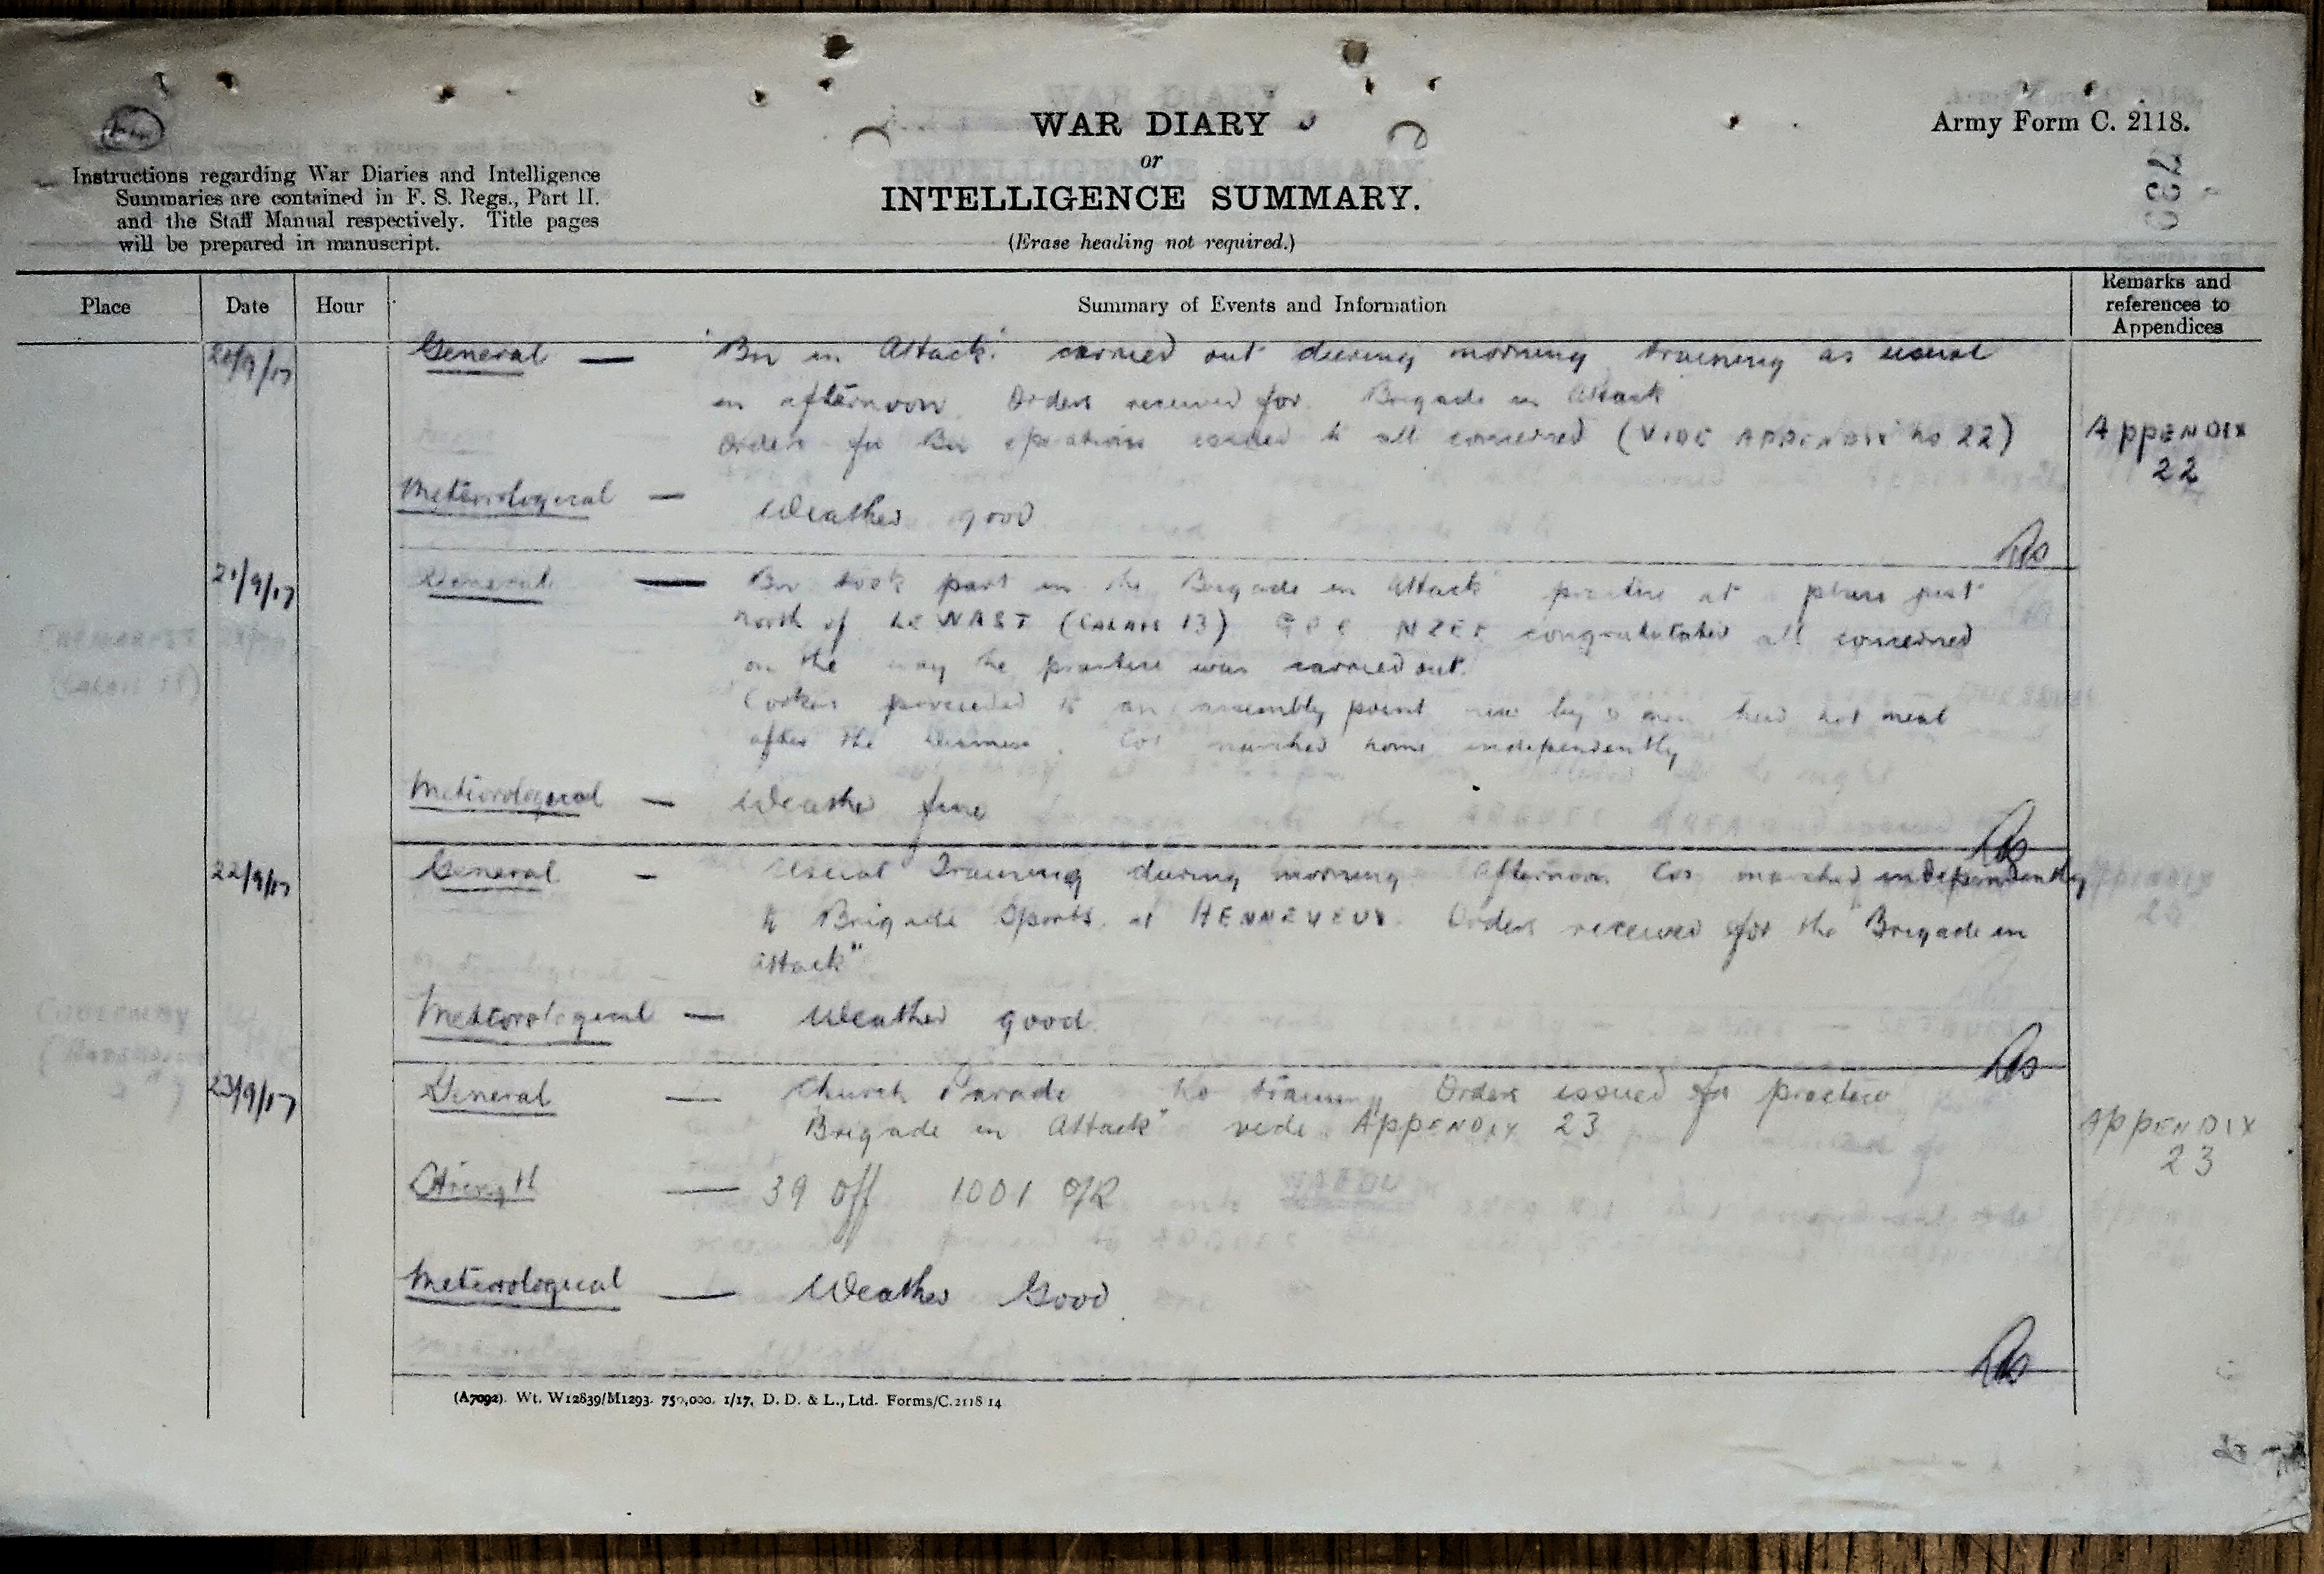 WAR DIARY
or
INTELLIGENCE SUMMARY.
(Erase heading not required.)
Army Form C. 2118.
Instructions regarding War Diaries and Intelligence
Summaries are contained in F. S. Regs., Part II.
and the Staff Manual respectively. Title pages
will be prepared in manuscript.
Place Date Hour Summary of Events and Information Remarks and references to Appendices
20/9/17 General — "Bn in Attack" carried out during morning training as usual
in afternoon. Orders received for Brigade in Attack
Orders for Bn operations issued to all concerned (VIDE APPENDIX No 22) APPENDIX 22
Meteorological — Weather good
21/9/17 General — Bn took part in the Brigade in Attack practice at place just
north of LE WAST (CALAIS 13) GOC NZEF congratulated all concerned
on the way the practice was carried out.
Cookers proceeded to an assembly point men had hot meal
after the . Cos marched home independently
Meteorological — Weather fine
22/9/17 General — Usual Training during morning Afternoon Cos marched independently
to Brigade Sports at HENNEVEUX. Orders received for the "Brigade in
Attack"
Meteorological — Weather good.
23/9/17 General — Church Parade No training Orders issued for practice
Brigade in Attack" vide APPENDIX 23 APPENDIX 23
Strength — 39 Off 1001 O/R
Meteorological — Weather Good
(A7092). Wt. W12839/M1293. 750,000. 1/17. D. D. & L., Ltd. Forms/C.2118 14